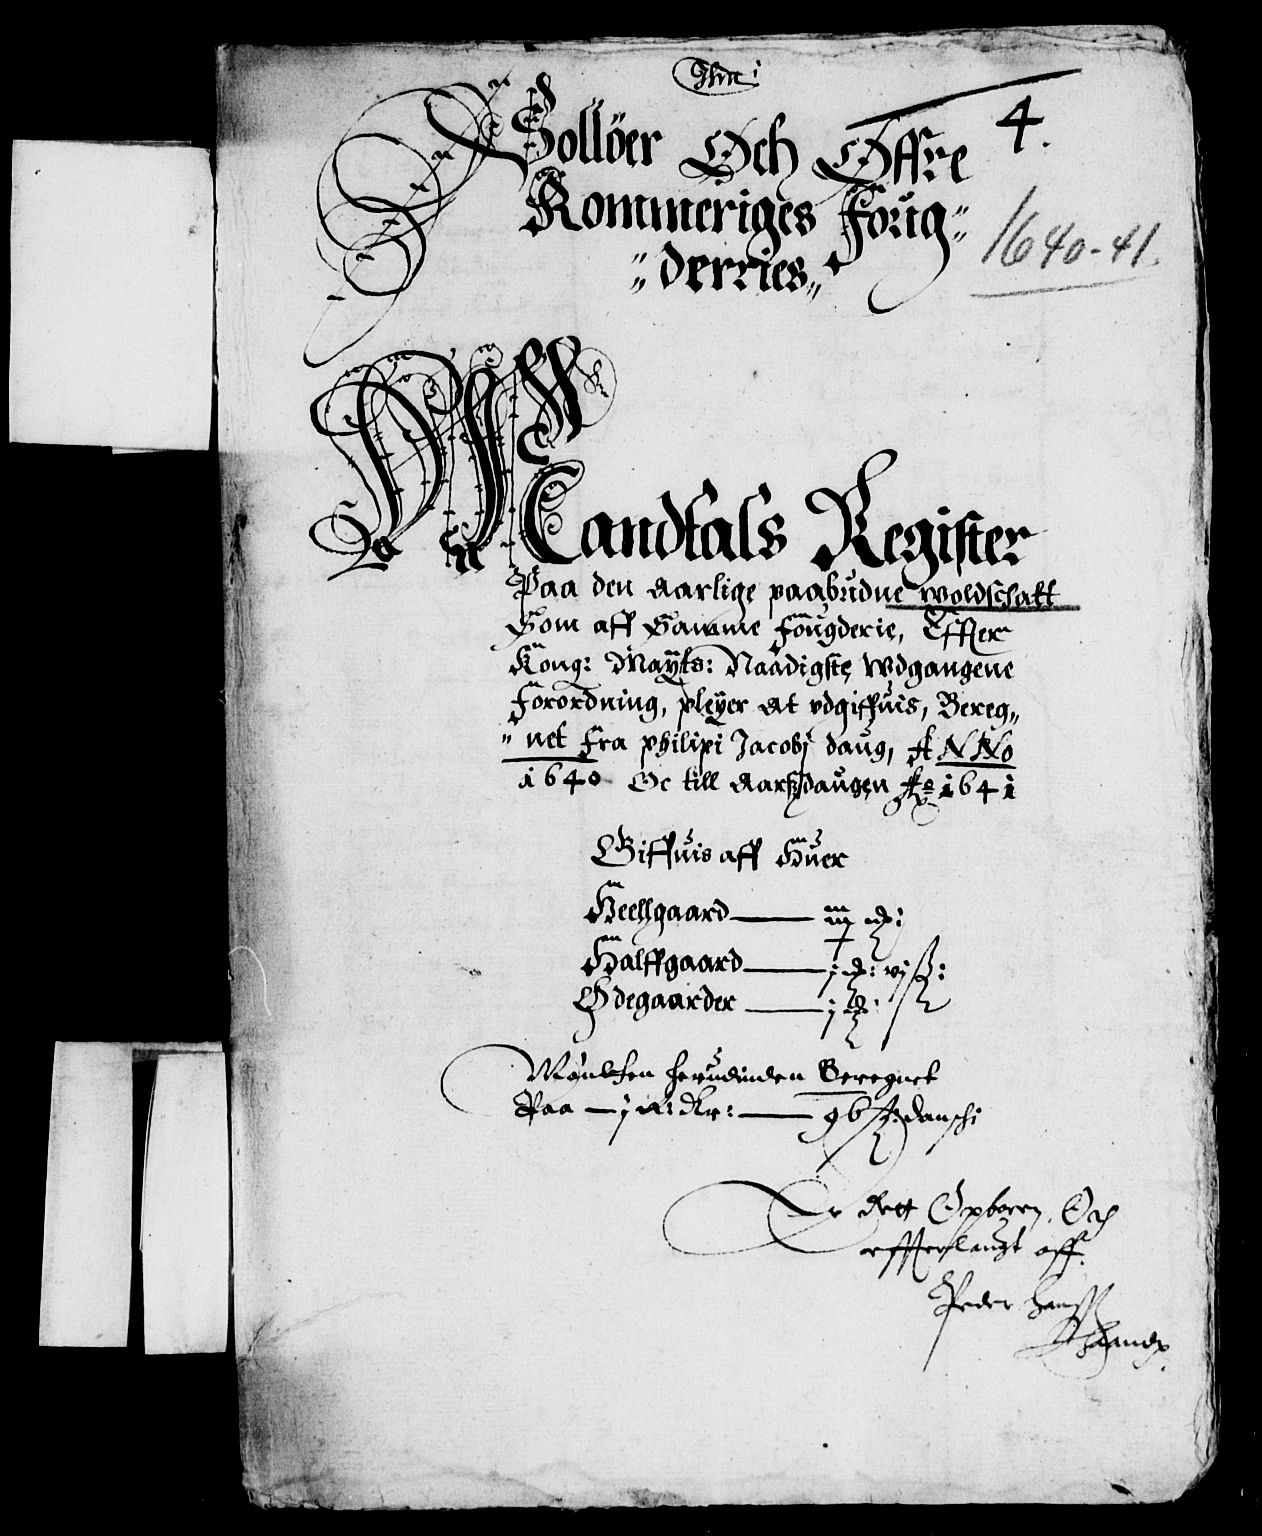 4.
Solløer Och Øffre
Rommeriges Foug-
derries
1640-41.
Mandtals Register
Paa den aarlige paabudne woldschatt
Som aff Samme Fougderie, Effter
Kong: Mayts: Naadigste wdgangene
Forordning, pleyer at vdgiffuis, Bereg-
net Fra philipi Jacobj daug, ANNo
1640 Oc till aarßdaugen Ao 1641
Giffuis aff Huer
Heellgaard
Halffgaard
Ødegaarder
Mynthen herudinden Beregnet
Paa 96 ß danschi
Er Rett Opboren, Och
Peder